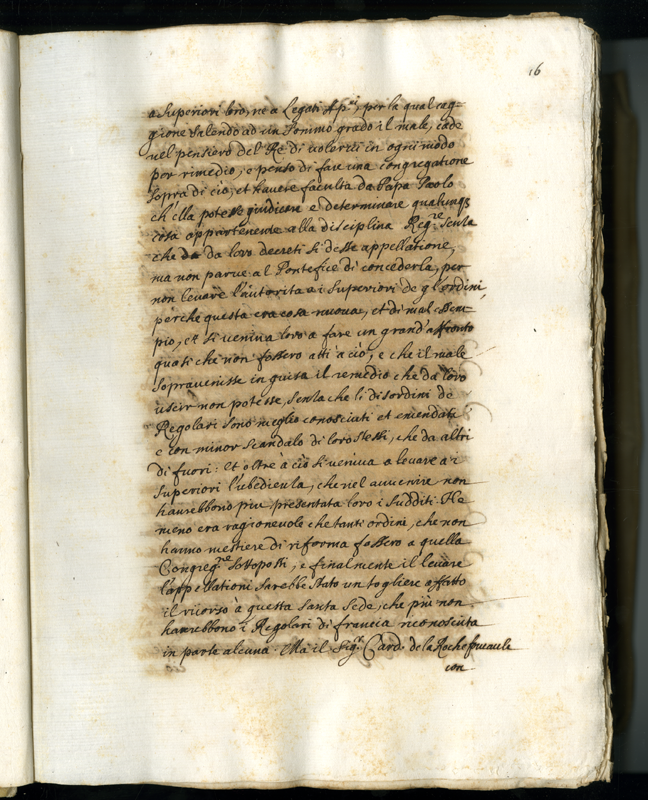 16
a Superiori loro, ne a Legati Ap.ci, per la qual cag=
gione salendo ad un sommo grado il male, cade
nel pensiero del Re di volerui in ogni modo
por rimedio, e penso di fare una congregatione
sopra di ciò, et hauere facultà da Papa Paolo
ch'ella potesse giudicare e determinare qualunq;
cosa appartenente alla disciplina Reg.re senza
che da loro decreti si desse appellatione,
ma non parue al Pontefice di concederla, per
non leuare l'autorita a i Superiori de gl'ordini,
perche questa era cosa nuoua, et di mal essem=
pio, et si veniua loro a fare un grand'affronto
quasi che non fossero atti a ciò, e che il male
soprauenisse in guisa il remedio che da loro
uscir non potesse, senza che li disordini de
Regolari sono meglio conosciuti et emendati
e con minor scandalo di loro stessi, che da altri
di fuori: et oltre à ciò si veniua a leuare a i
Superiori l'ubedienza, che nel auuenire non
haurebbono piu presentata loro i sudditi. Ne
meno era ragioneuole che tanti ordini, che non
hanno mestiere di riforma fossero a quella
Congreg.ne sottoposti, e finalmente il leuare
l'appellationi sarebbe stato un togliere affatto
il ricorso à questa Santa Sede, che più non
haurebbono i Regolari di francia riconosciuta
in parte alcuna. Ma il Sig.r Card. de la Rochefoucault
con